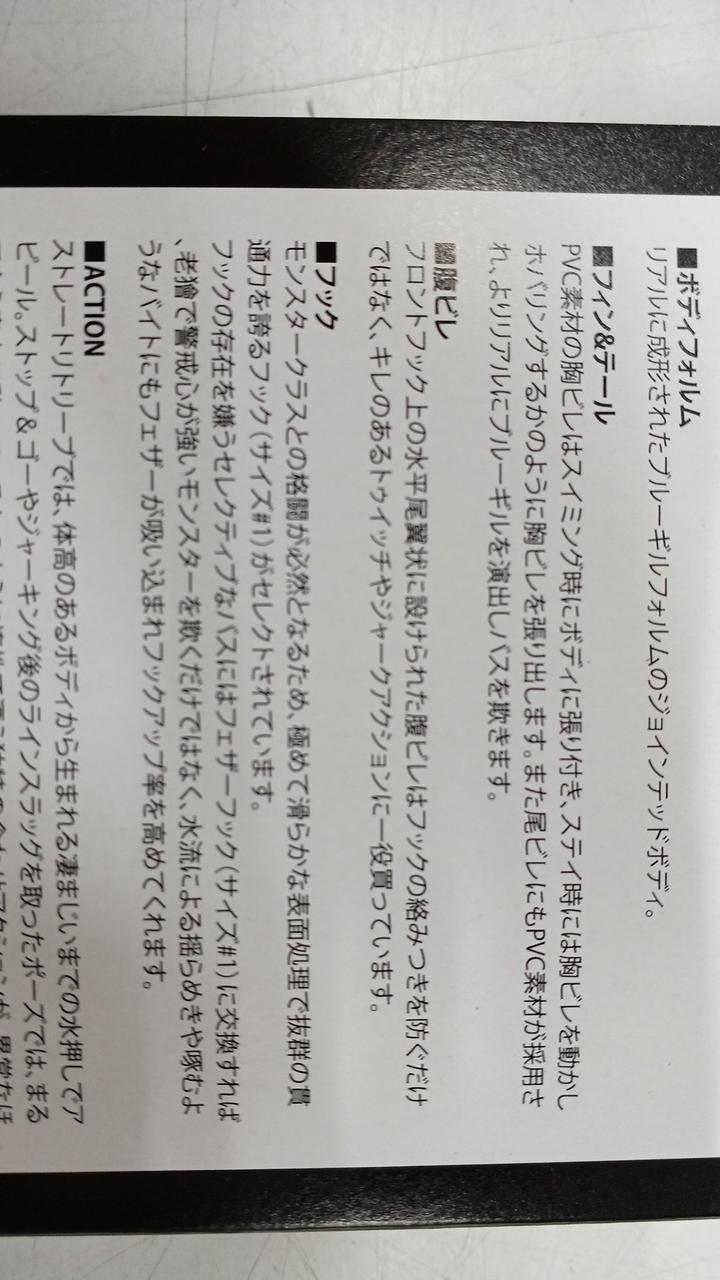 ■ボディフォルム
リアルに成形されたブルーギルフォルムのジョインテッドボディ。
■フィン&テール
PVC素材の胸ビレはスイミング時にボディに張り付き、ステイ時には胸ビレを動かし
ホバリングするかのように胸ビレを張り出します。また尾ビレにもPVC素材が採用さ
れ、よりリアルにブルーギルを演出しバスを欺きます。
■腹ビレ
フロントフック上の水平尾翼状に設けられた腹ビレはフックの絡みつきを防ぐだけ
ではなく、キレのあるトゥイッチやジャークアクションに一役買っています。
■フック
モンスタークラスとの格闘が必然となるため、極めて滑らかな表面処理で抜群の貫
通力を誇るフック(サイズ#1)がセレクトされています。
フックの存在を嫌うセレクティブなバスにはフェザーフック(サイズ#1)に交換すれば
、老獪で警戒心が強いモンスターを欺くだけではなく、水流による揺らめきや啄むよ
うなバイトにもフェザーが吸い込まれフックアップ率を高めてくれます。
■ACTION
ストレートリトリーブでは、体高のあるボディから生まれる凄まじいまでの水押しでア
ピール。ストップ&ゴーやジャーキング後のラインスラッグを取ったポーズでは、まる